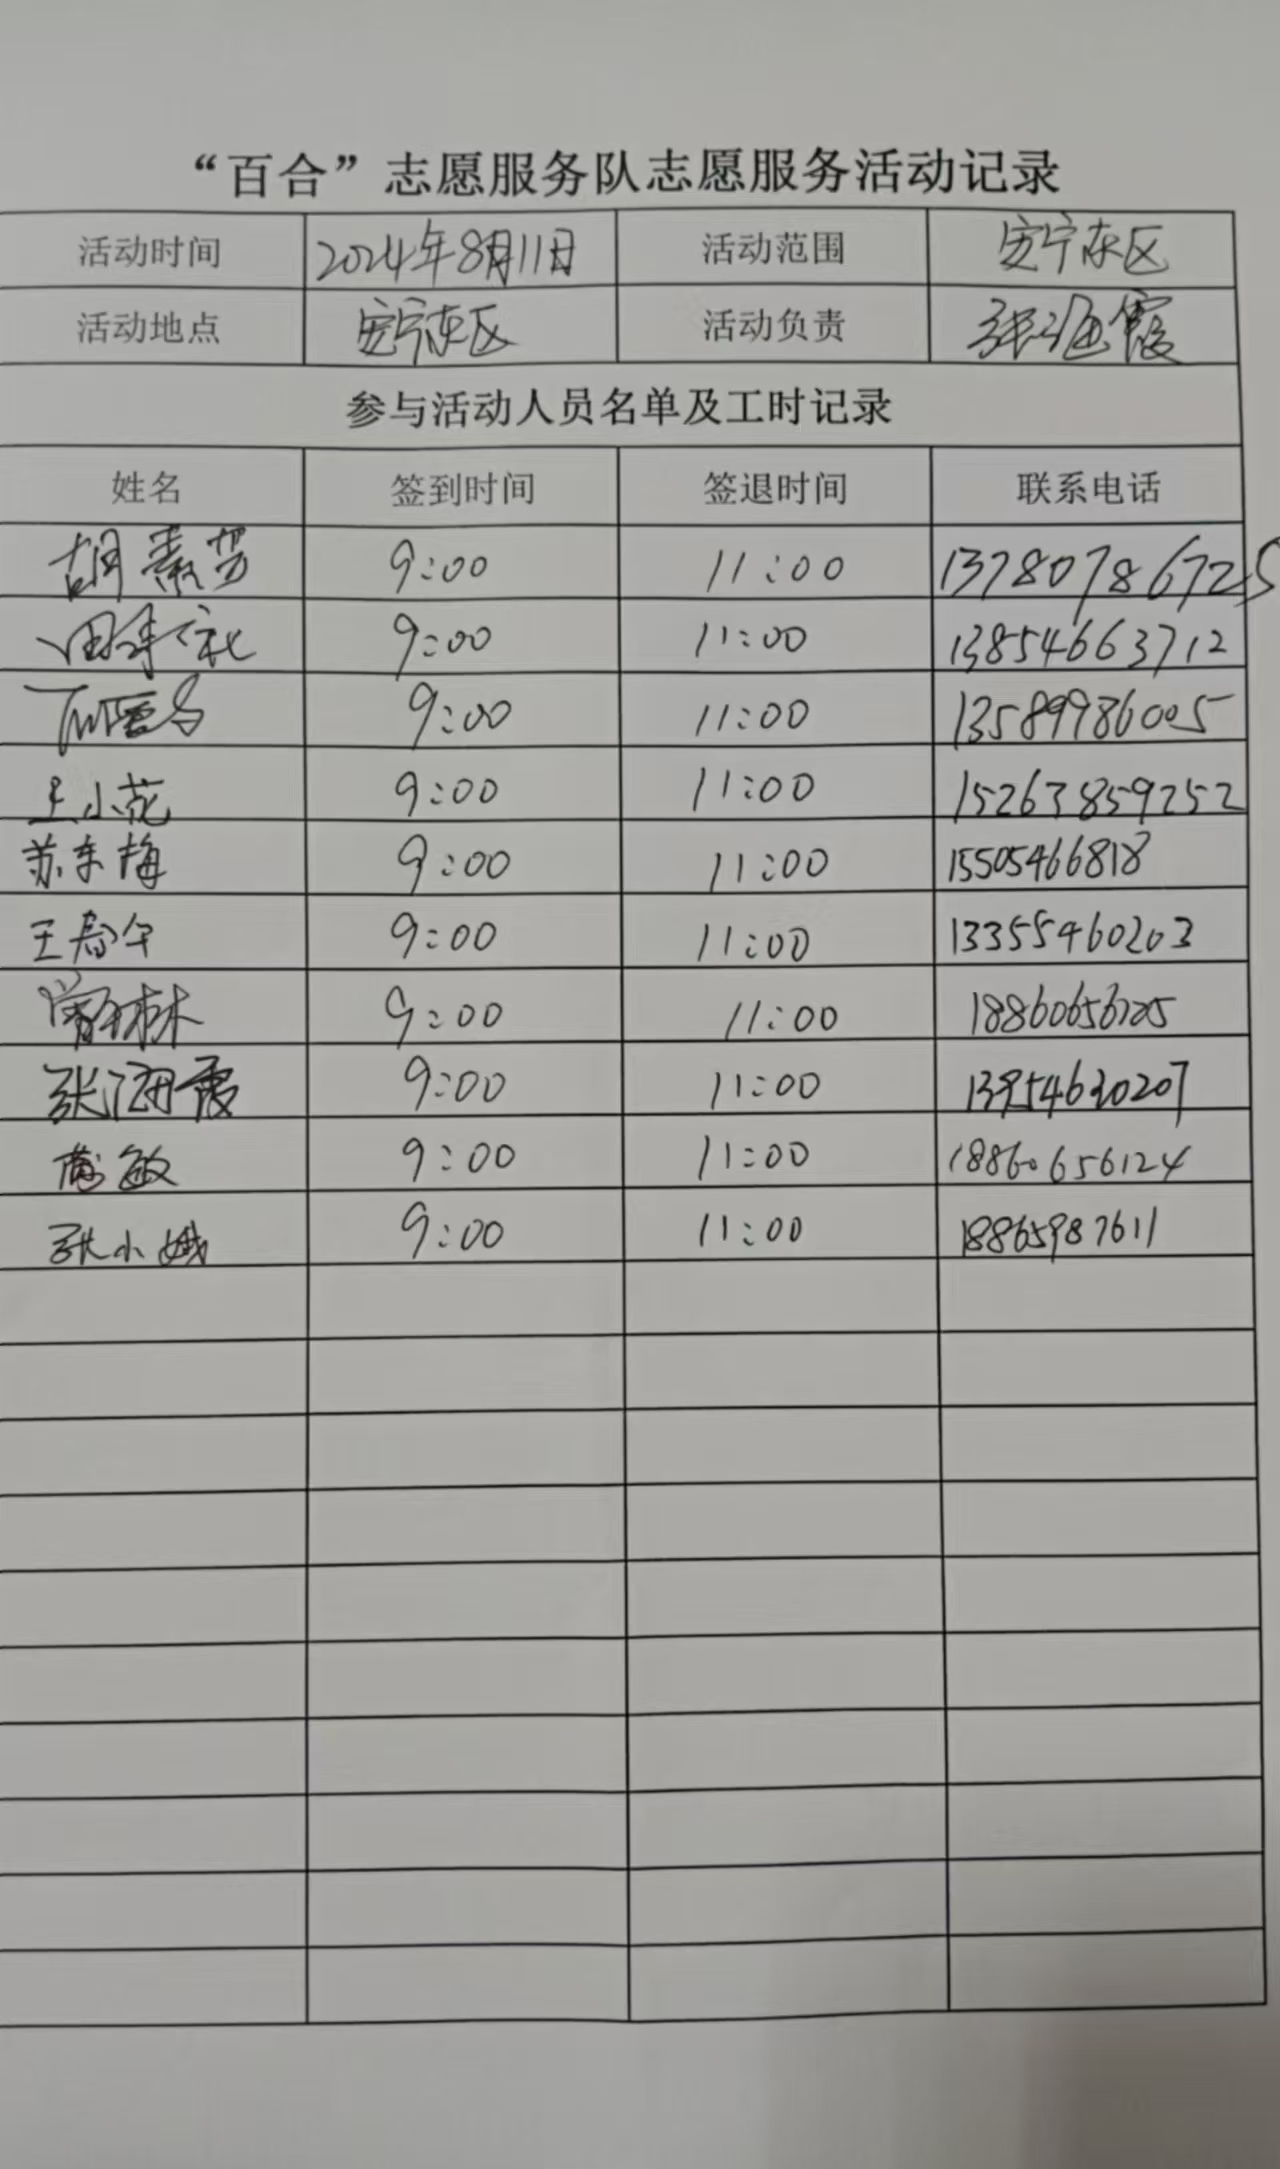 “百合”志愿服务队志愿服务活动记录
活动时间 2024年8月11日 活动范围 安宁东区
活动地点 安宁东区 活动负责 张海霞
参与活动人员名单及工时记录
姓名 签到时间 签退时间 联系电话
胡素芳 9:00 11:00 13780786725
9:00 11:00 13854663712
9:00 11:00 13589986005
王小花 9:00 11:00 15263859252
苏东梅 9:00 11:00 15505466818
王春午 9:00 11:00 13355460203
9:00 11:00 18860656125
张海霞 9:00 11:00 13954630207
敏 9:00 11:00 18860656124
张小娥 9:00 11:00 18865987611